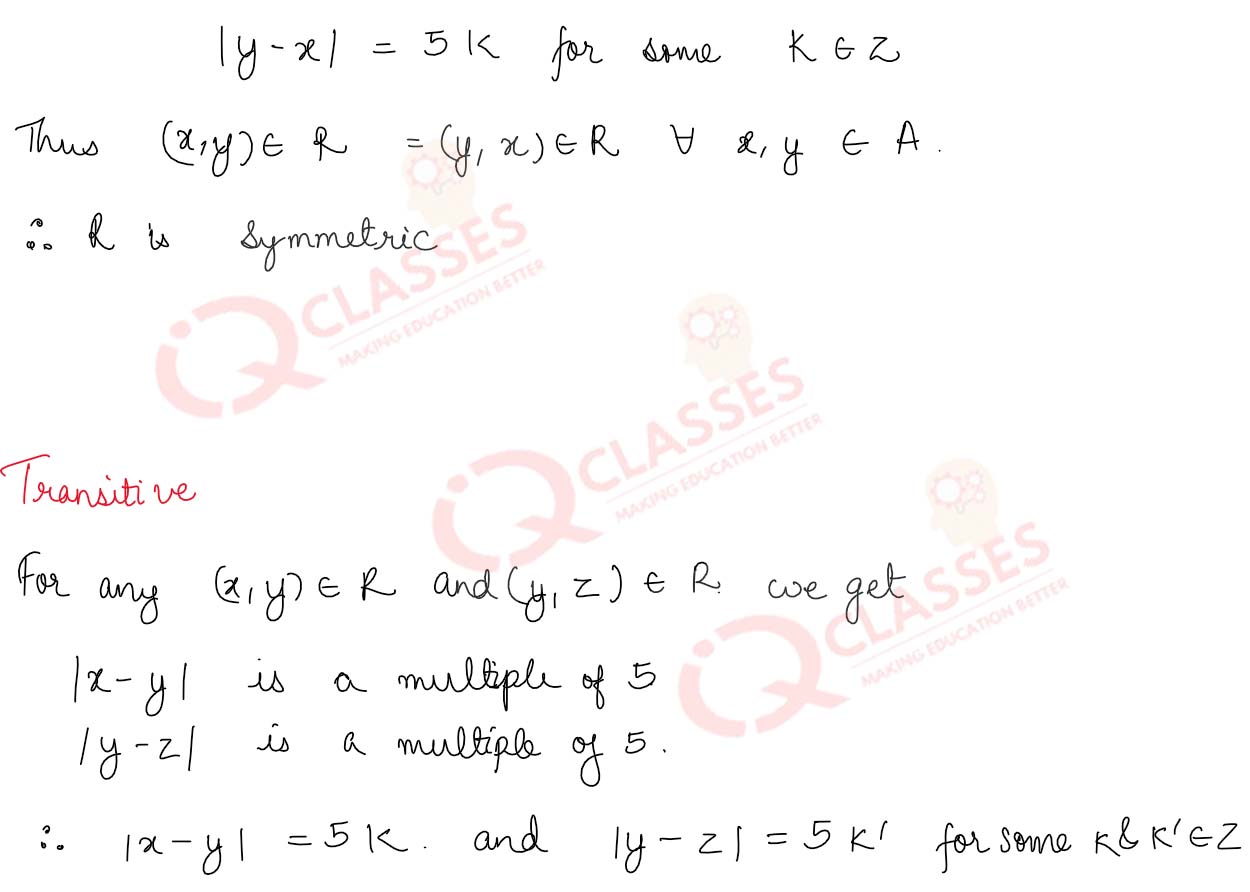 |y-x| = 5K for some K ∈ Z
Thus (x,y) ∈ R = (y, x) ∈ R ∀ x, y ∈ A.
∴ R is Symmetric
iQ CLASSES
MAKING EDUCATION BETTER
iQ CLASSES
MAKING EDUCATION BETTER
Transitive
iQ CLASSES
MAKING EDUCATION BETTER
For any (x, y) ∈ R and (y, z) ∈ R. we get
|x-y| is a multiple of 5
|y-z| is a multiple of 5.
∴ |x-y| = 5K. and |y-z| = 5K' for some K & K' ∈ Z